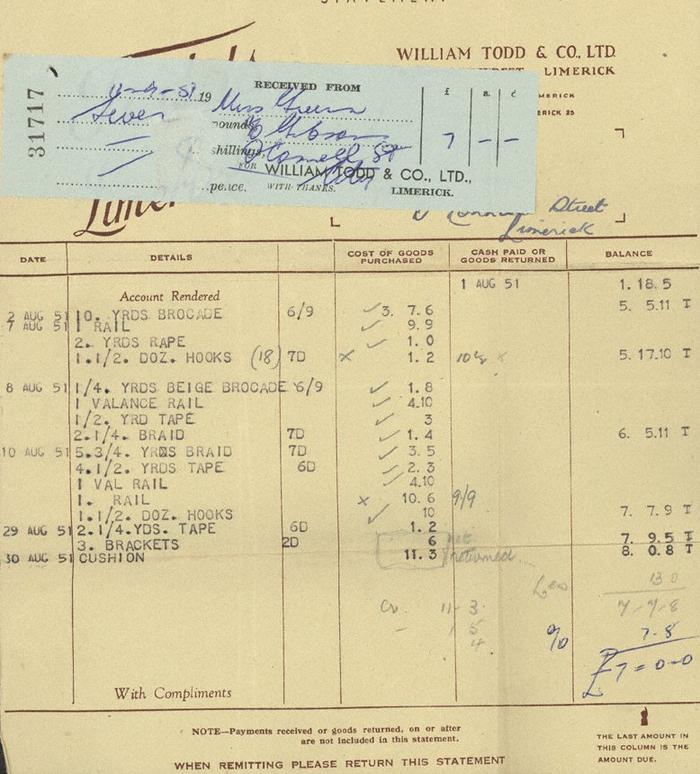 STATEMENT
WILLIAM TODD & CO., LTD.
LIMERICK
31717
11-9-51 19
RECEIVED FROM
Miss Green
£ s. d.
Seven pounds
O'Connell St
7 - -
shillings,
FOR WILLIAM TODD & CO., LTD.,
pence. WITH THANKS. LIMERICK.
Street
Limerick
DATE DETAILS COST OF GOODS PURCHASED CASH PAID OR GOODS RETURNED BALANCE
1 AUG 51 1. 18. 5
Account Rendered
2 AUG 51 10. YRDS BROCADE 6/9 3. 7. 6 5. 5.11 T
7 AUG 51 1 RAIL 9. 9
2. YRDS RAPE 1. 0
1.1/2. DOZ. HOOKS (18) 7D x 1. 2 10½ x 5. 17.10 T
8 AUG 51 1/4. YRDS BEIGE BROCADE 6/9 1. 8
1 VALANCE RAIL 4.10
1/2. YRD TAPE 3
2.1/4. BRAID 7D 1. 4 6. 5.11 T
10 AUG 51 5.3/4. YRDS BRAID 7D 3. 5
4.1/2. YRDS TAPE 6D 2. 3
1 VAL RAIL 4.10
1. RAIL x 10. 6 9/9
1.1/2. DOZ. HOOKS 10 7. 7.9 T
29 AUG 51 2.1/4.YDS. TAPE 6D 1. 2
3. BRACKETS 2D 6 7. 9.5 T
30 AUG 51 CUSHION 11. 3 returned 8. 0.8 T
Less 13 0
Cr. 11 - 3 7-7-8
- 1 5 7-8
4
£7=0-0
With Compliments
NOTE—Payments received or goods returned, on or after
are not included in this statement.
THE LAST AMOUNT IN
THIS COLUMN IS THE
AMOUNT DUE.
WHEN REMITTING PLEASE RETURN THIS STATEMENT